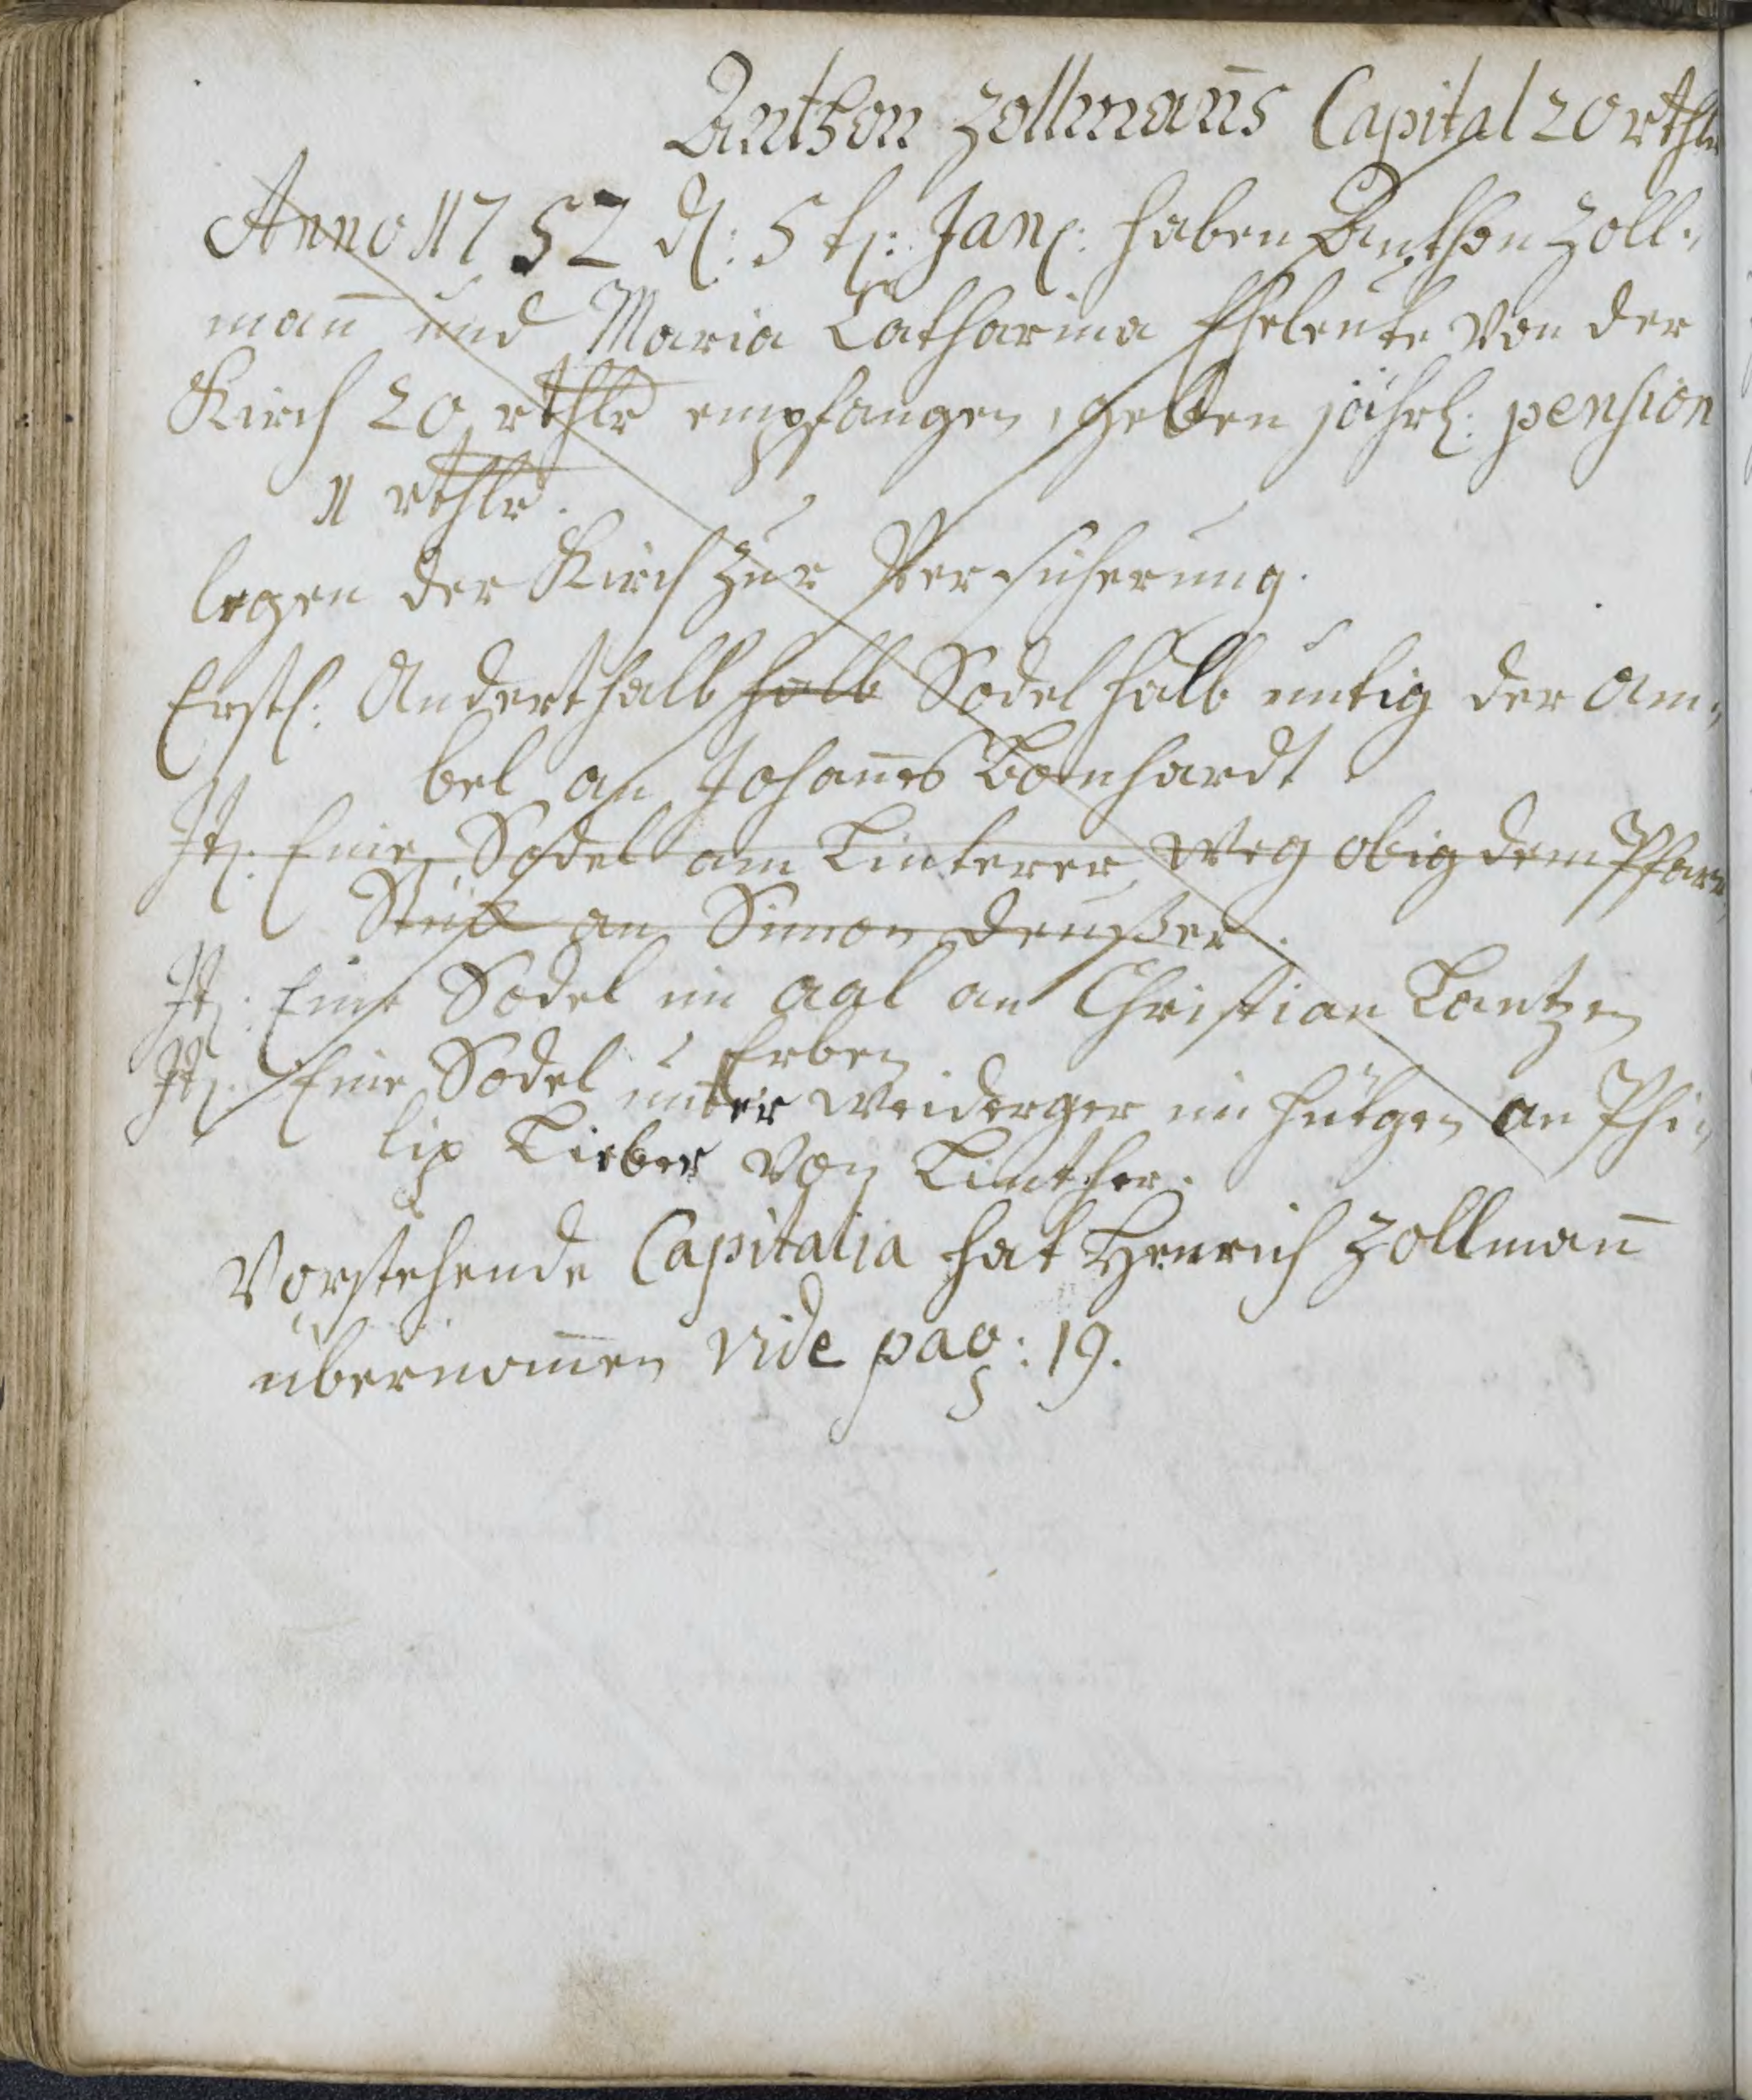 Anthon Zollman̄s Capital 20 rthlr
Anno 1752 d: 5t: Jan: haben Anthon Zoll-
man̄ und Maria Catharina Eheleute von der
Kirch 20 rthlr empfangen, geben jährl: pension
1 rthlr.
legen der Kirch zur Versicherung.
Erstl: Anderthalb halb Sodel halb untig der Am-
bel an Johan̄es Bonhardt.
It: Eine Sodel am Linterer Weg obig dem Pfarr
Stück an Simon Deußer.
It: Eine Sodel im aal an Christian Lantzen
Erben
It: Eine Sodel unter Weiderger im hütgen an Phi-
lip Lieber von Linther.
Vorstehende Capitalia hat Henrich Zollman̄
übernom̄en vide pag: 19.